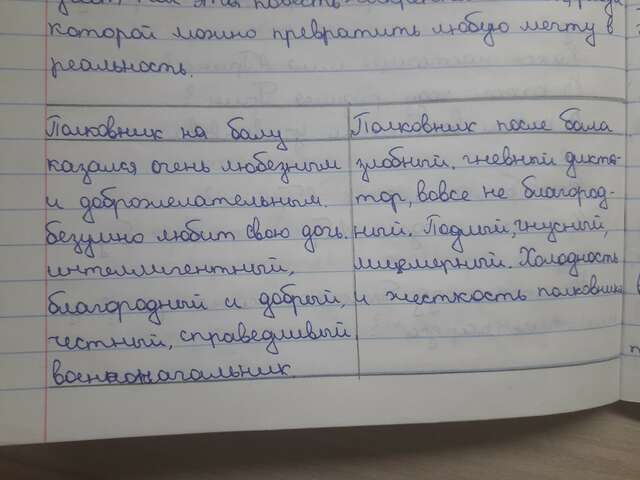 которой можно превратить любую мечту в
реальность.
Полковник на балу
казался очень любезным
и доброжелательным.
безумно любит свою дочь.
интеллигентный,
благородный и добрый,
честный, справедливый
военноначальник.
Полковник после бала
злобный. гневный дикта-
тор, вовсе не благород-
ный. Подлый, гнусный,
лицемерный. Холодность
и жесткость полковника